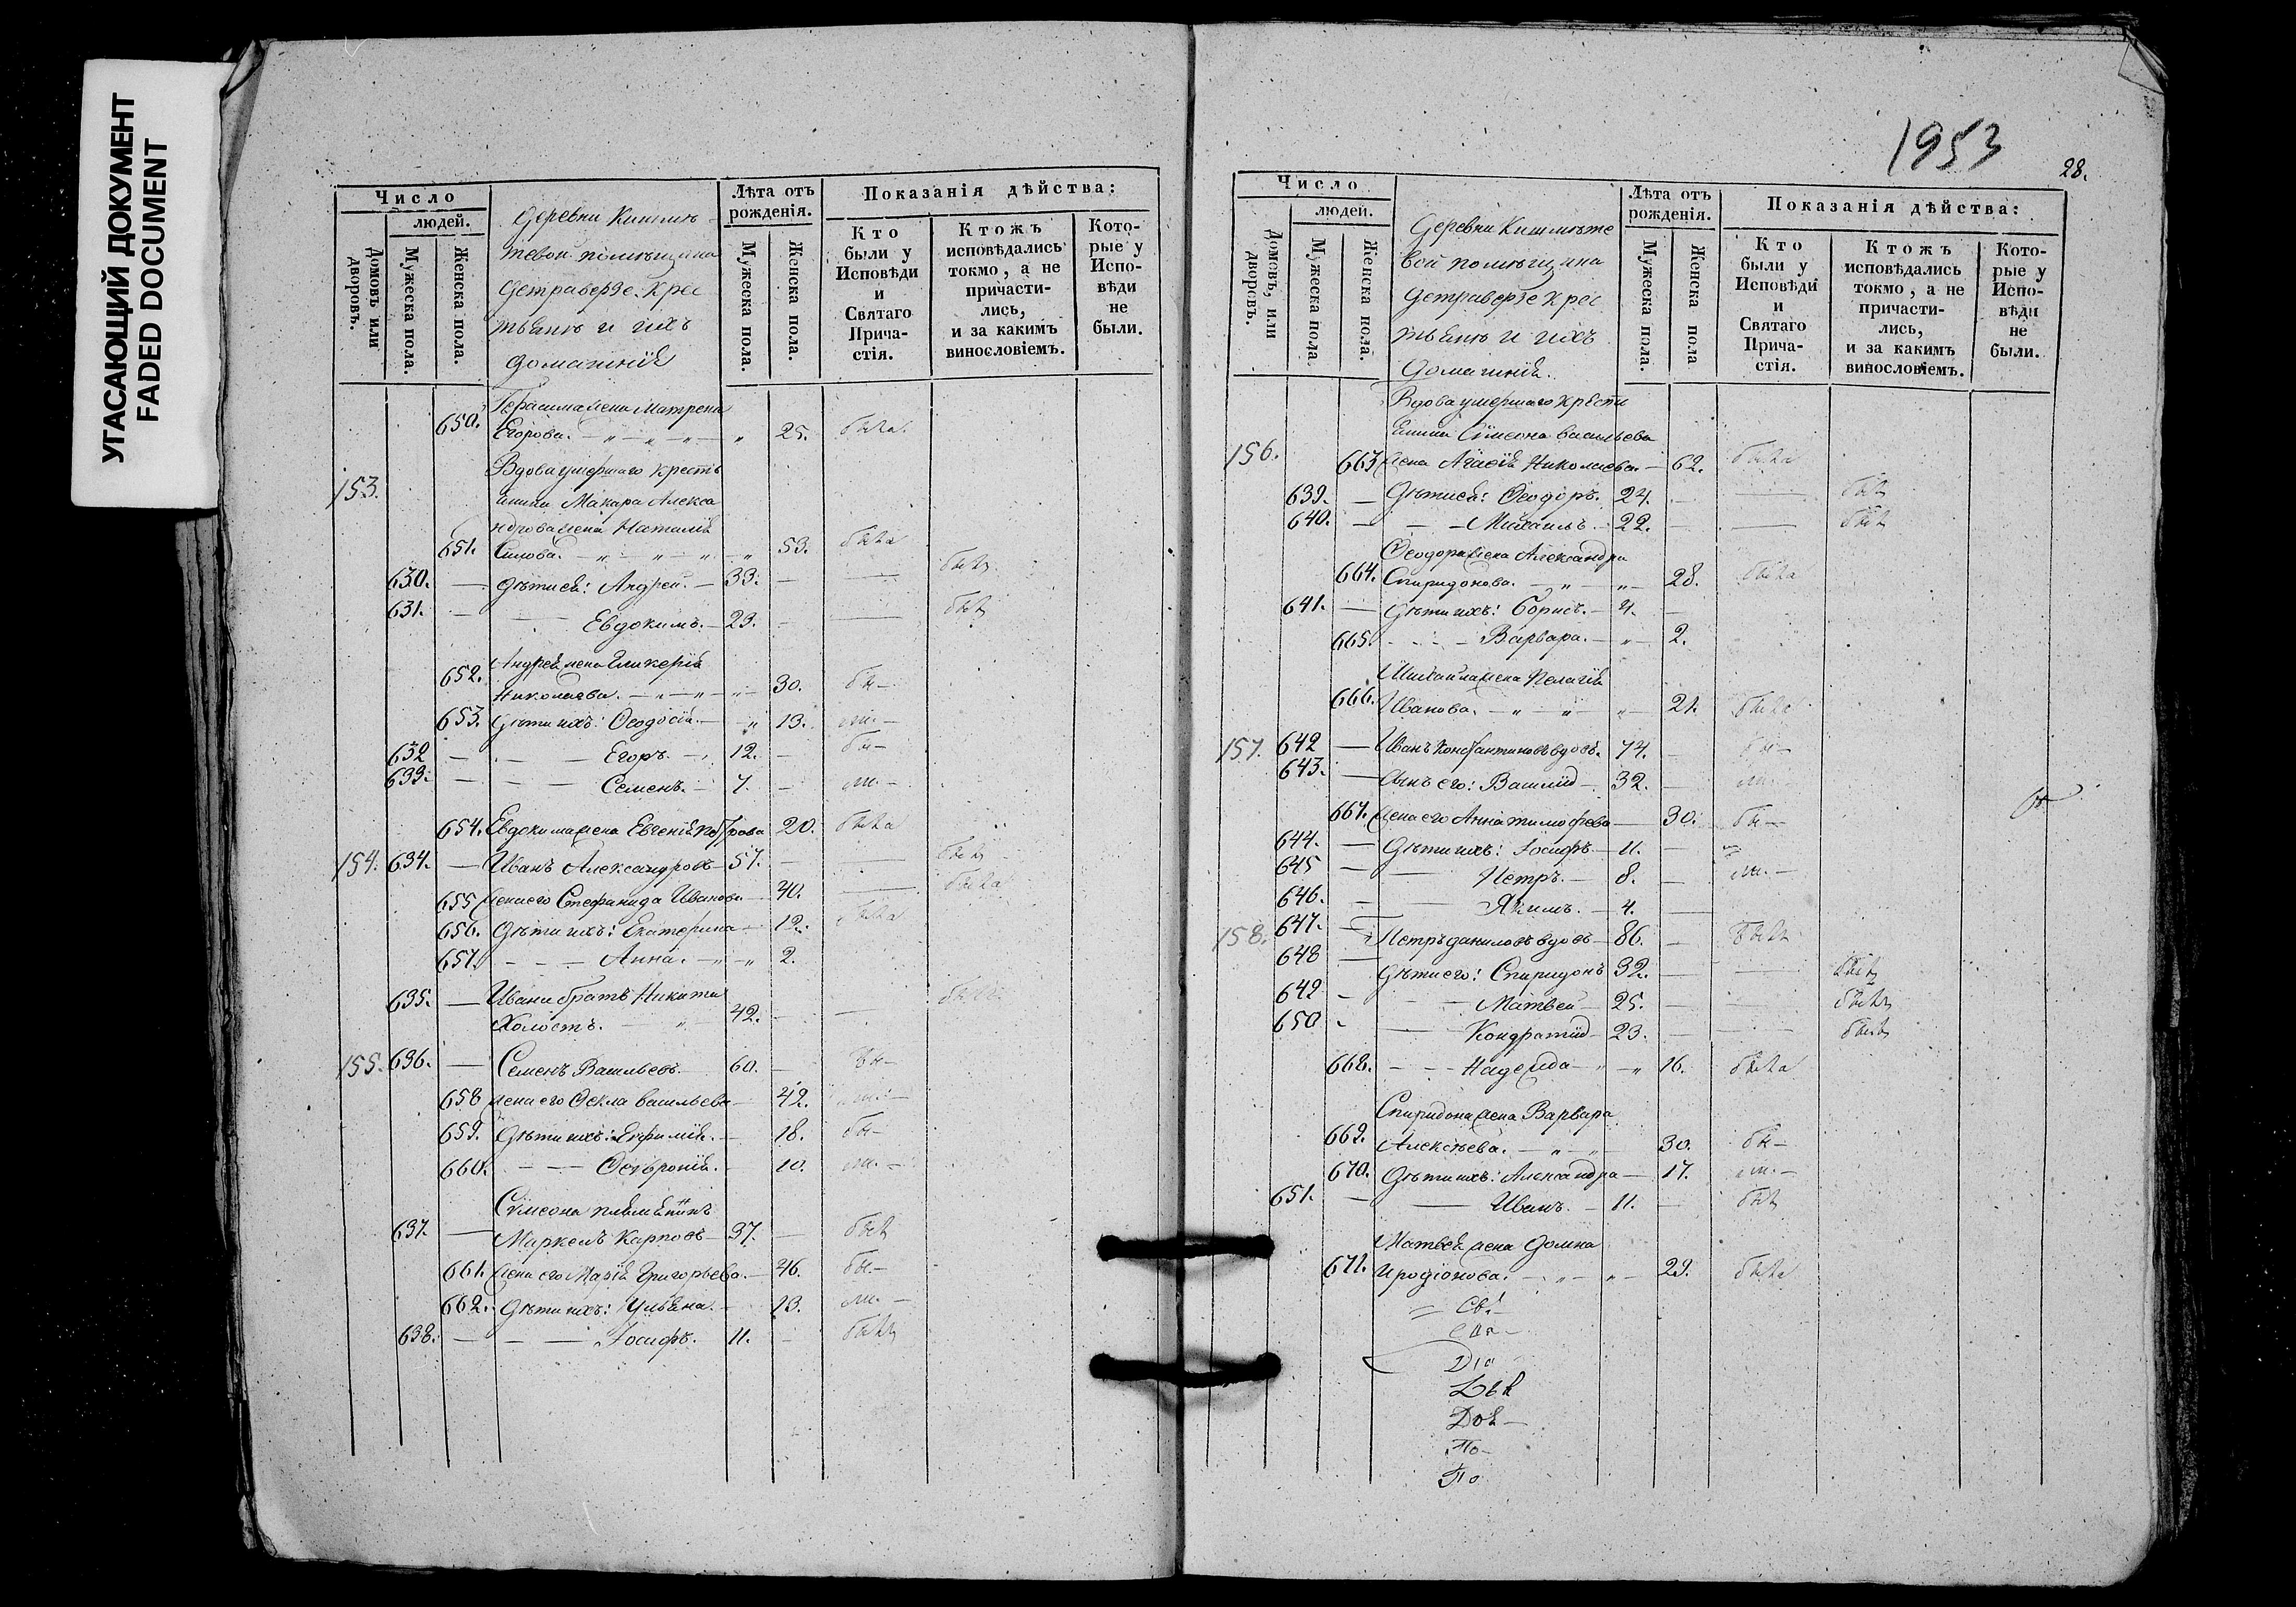 УГАСАЮЩИЙ ДОКУМЕНТ
FADED DOCUMENT
Число
людей.
Домовъ или дворовъ.
Мужеска пола.
Женска пола.
Деревни Кишмѣ
тевой помѣщика
Детраверзе Крес
тьянѣ и ихъ
домашніе
Лѣта отъ рожденія.
Мужеска пола.
Женска пола.
Показанія дѣйства:
Кто были у Исповѣди и Святаго Причастія.
Ктожъ исповѣдались токмо, а не причастились, и за какимъ винословіемъ.
Которые у Исповѣди не были.
Герасима жена Матрена
650. Егорова. 25. была
153. Вдова умершаго кресть
янина Макара Алекса
ндрова жена Наталія
651. 53. была
630. — дѣти ея: Андрей. — 33. — былъ
631. — Евдокимъ. — 29. — былъ
Андрея жена Гликерія
652. Николаева. 30. бы—
653. дѣти ихъ: Ѳеодосія. 13. ли. —
632 — Егоръ. — 12. — бы—
633. — Семенъ. — 7. — ли. —
654. Евдокима жена Евгенія Петрова 20. была
154. 634. — Иванъ Александровъ — 57. — былъ
655 жена его Стефанида Иванова — 40. — была
656. дѣти ихъ: Екатерина — 12. была
657. — Анна. — 2.
635. — Ивана братъ Никита
Холостъ. 42. — былъ
155. 636. — Семенъ Васильевъ. 60. — бы—
658 жена его Ѳекла Васильева 42. ли. —
659. дѣти ихъ: Евфимія. — 18. бы—
660. — Ѳевронія. — 10. ли. —
Сѵмеона племянникъ
637. — Маркелъ Карповъ — 37. — былъ
661. жена его Марія Григорьева. — 46. бы. —
662. дѣти ихъ: Ульяна. — 13. ли. —
638. — Іосифъ. 11. — былъ
1953
28.
Число
людей.
Домовъ, или дворовъ.
Мужеска пола.
Женска пола.
Деревни Кишмѣте
вой помѣщика
Детраверзе Крес
тьянѣ и ихъ
домашніе.
Лѣта отъ рожденія.
Мужеска пола.
Женска пола
Показанія дѣйства:
Кто были у Исповѣди и Святаго Причастія.
Ктожъ исповѣдались токмо, а не причастились, и за какимъ винословіемъ.
Которые у Исповѣди не были.
Вдова умершаго кресть
янина Сѵмеона Васильева
156. 663 жена Николаева. — 62. была
639. — дѣти ея: Ѳеодоръ. 24. — былъ
640. — Михаилъ. 22. — былъ
Ѳеодора жена Александра
664. Спиридонова. 28. была
641. — дѣти ихъ: Борисъ. — 4. —
665. — Варвара. — 2.
Михаила жена Пелагія
666. Иванова. 21. была
157. 642 — Иванъ Константиновъ вдовъ. 74. — бы—
643. — Сынъ его: Василій — 32. — ли. —
667. жена его Анна Тимофеева — 30. бы—
644. — дѣти ихъ: Іосифъ — 11. —
645 — Петръ. — 8. — ли. —
646. — Якимъ. — 4. —
158. 647. — Петръ Даниловъ вдовъ — 86. — былъ
648 — дѣти его: Спиридонъ 32. — былъ
642 — Матвей — 25. — былъ
650 — Кондратій — 23. — былъ
668. — Надежда — 16. была
Спиридона жена Варвара
669. Алексѣева. 30. бы—
670. дѣти ихъ: Александра — 17. ли. —
651. — Иванъ. — 11. — былъ
Матвея жена Домна
671. Иродіонова. 29. была
Св.
Діа
Дья
По—
По